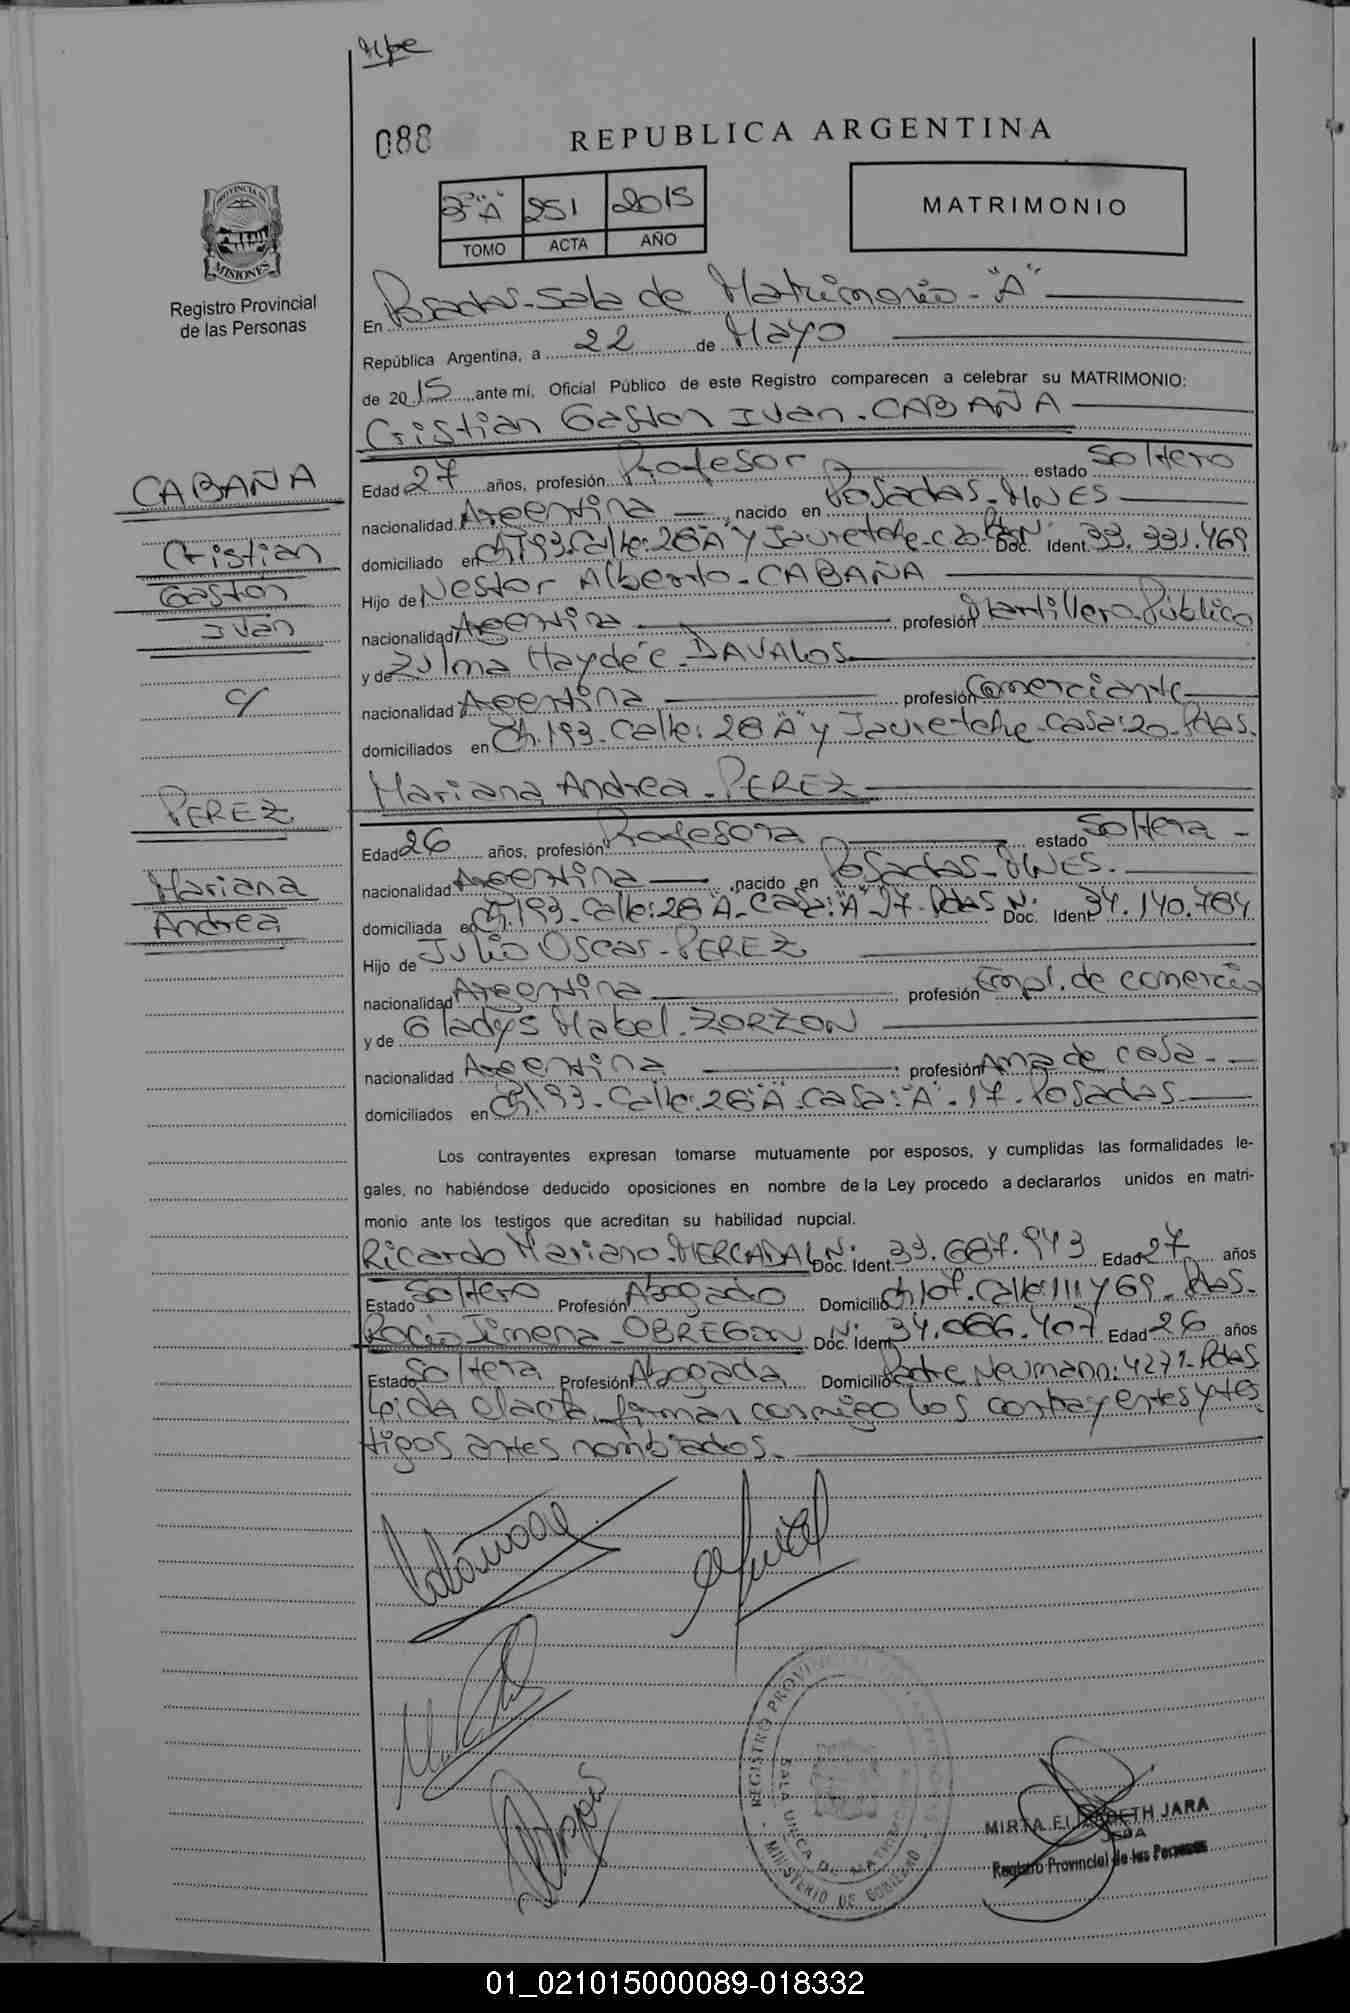 088
REPUBLICA ARGENTINA
PROVINCIA DE
MISIONES
Registro Provincial
de las Personas
2º "A" 251 2015
TOMO ACTA AÑO
MATRIMONIO
En Posadas-Sala de Matrimonio-"A"
República Argentina, a 22 de Mayo
de 2015 ante mí, Oficial Público de este Registro comparecen a celebrar su MATRIMONIO:
Cristian Gastón Iván. CABAÑA
CABAÑA
Cristian
Gastón
Iván
c/
PEREZ
Mariana
Andrea
Edad 27 años, profesión Profesor estado Soltero
nacionalidad Argentina nacido en Posadas-MNES
domiciliado en Ch.193-Calle:28"A" y Jauretche-C 20. Pdas Nº Doc. Ident. 33.331.469
Hijo de Nestor Alberto-CABAÑA
nacionalidad Argentina profesión Martillero Público
y de Zulma Haydée-DAVALOS
nacionalidad Argentina profesión Comerciante
domiciliados en Ch.193-Calle:28"A" y Jauretche-Casa:20-Pdas.
Mariana Andrea-PEREZ
Edad 26 años, profesión Profesora estado Soltera-
nacionalidad Argentina nacido en Posadas-MNES.
domiciliada en Ch.193-Calle:28"A"-Casa:"A"-17-Pdas Nº Doc. Ident 34.140.784
Hijo de Julio Oscar-PEREZ
nacionalidad Argentina profesión Empl. de comercio
y de Gladys Mabel-ZORZON
nacionalidad Argentina profesión Ama de casa-
domiciliados en Ch.193-Calle:28"A"-Casa:"A"-17-Posadas
Los contrayentes expresan tomarse mutuamente por esposos, y cumplidas las formalidades le-
gales, no habiéndose deducido oposiciones en nombre de la Ley procedo a declararlos unidos en matri-
monio ante los testigos que acreditan su habilidad nupcial.
Ricardo Mariano-MERCADAL Nº Doc. Ident. 33.687.943 Edad 27 años
Estado Soltero Profesión Abogado Domicilio Calle:111 y 69-Pdas.
Rocío Jimena-OBREGON Nº Doc. Ident 34.066.407 Edad 26 años
Estado Soltera Profesión Abogada Domicilio Padre Neumann:4271-Pdas
Leída el acta, firman conmigo los contrayentes y tes
tigos antes nombrados.
REGISTRO PROVINCIAL DE LAS PERSONAS
SALA UNICA DE MATRIMONIO
MINISTERIO DE GOBIERNO
MIRTA ELIZABETH JARA
JEFA
Registro Provincial de las Personas
01_021015000089-018332